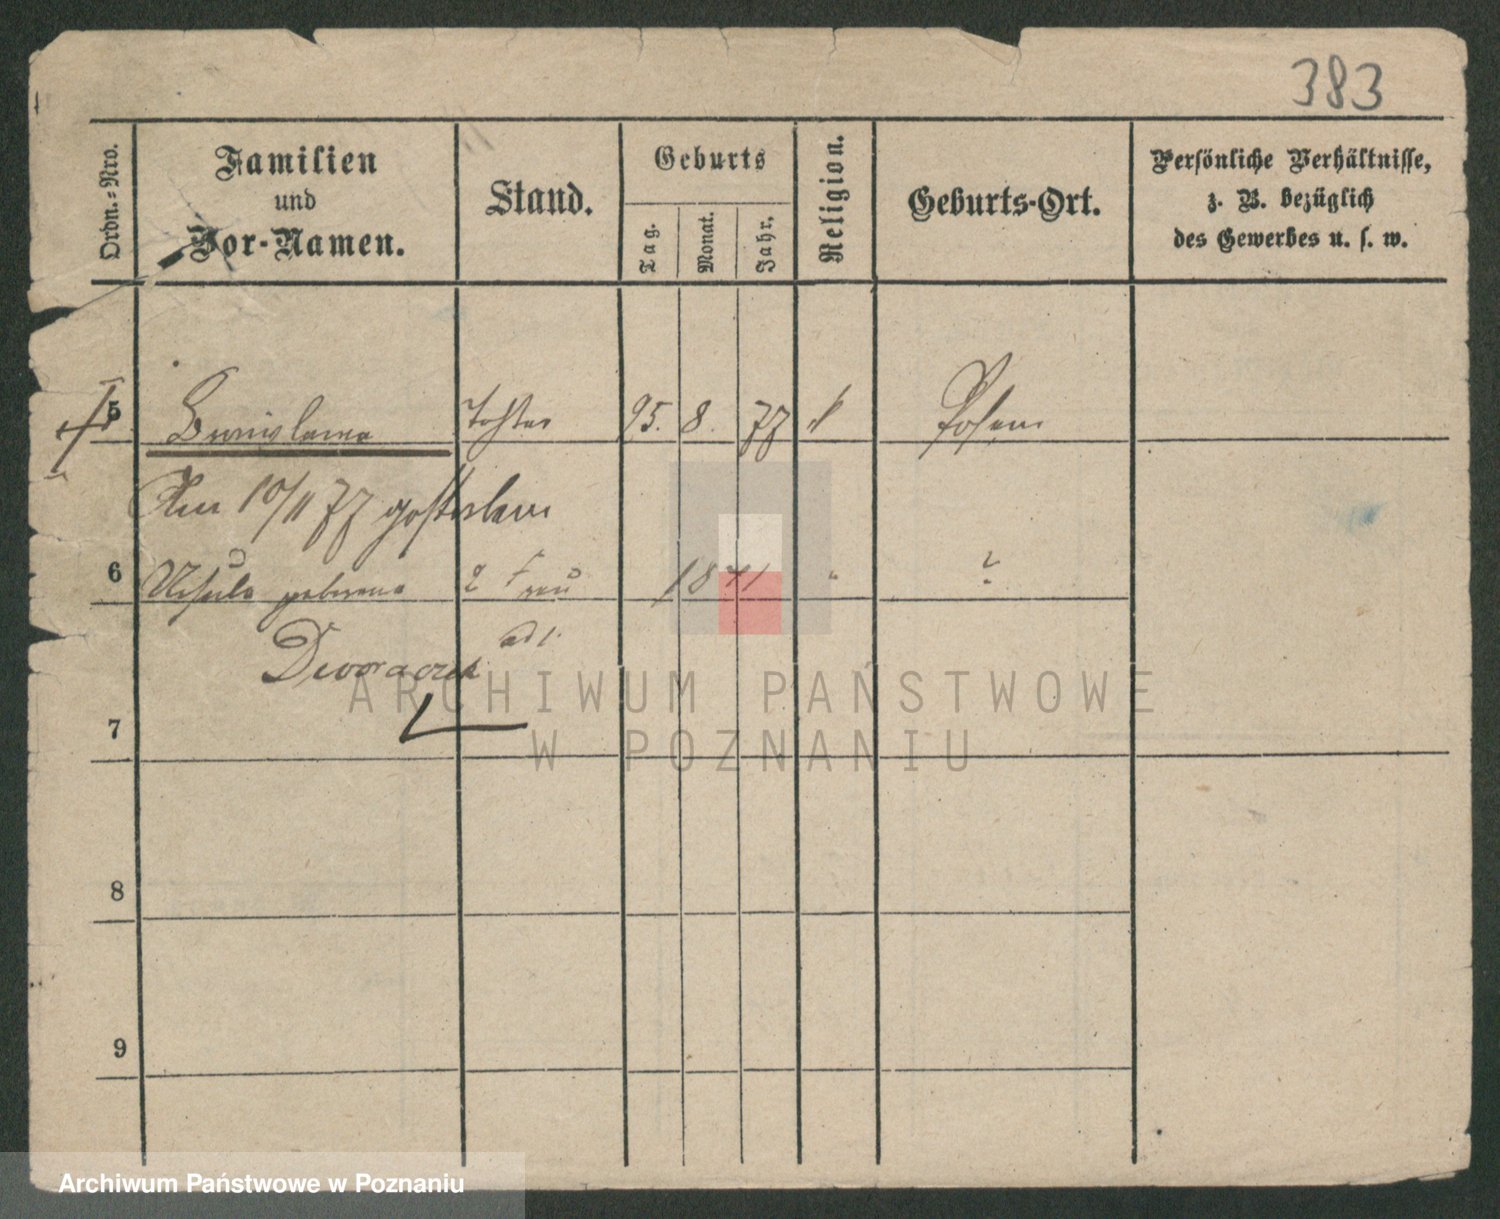 383
Ordn.-Nro.
Familien
und
Vor-Namen.
Stand.
Geburts
Tag.
Monat.
Jahr.
Religion.
Geburts-Ort.
Persönliche Verhältnisse,
z. B. bezüglich
des Gewerbes u. s. w.
5 Tochter 8. 77 Posen
Am 10/11 77 gestorben
6 Ursula geborene 2 Frau 1841 " ?
7
8
9
ARCHIWUM PAŃSTWOWE
W POZNANIU
Archiwum Państwowe w Poznaniu